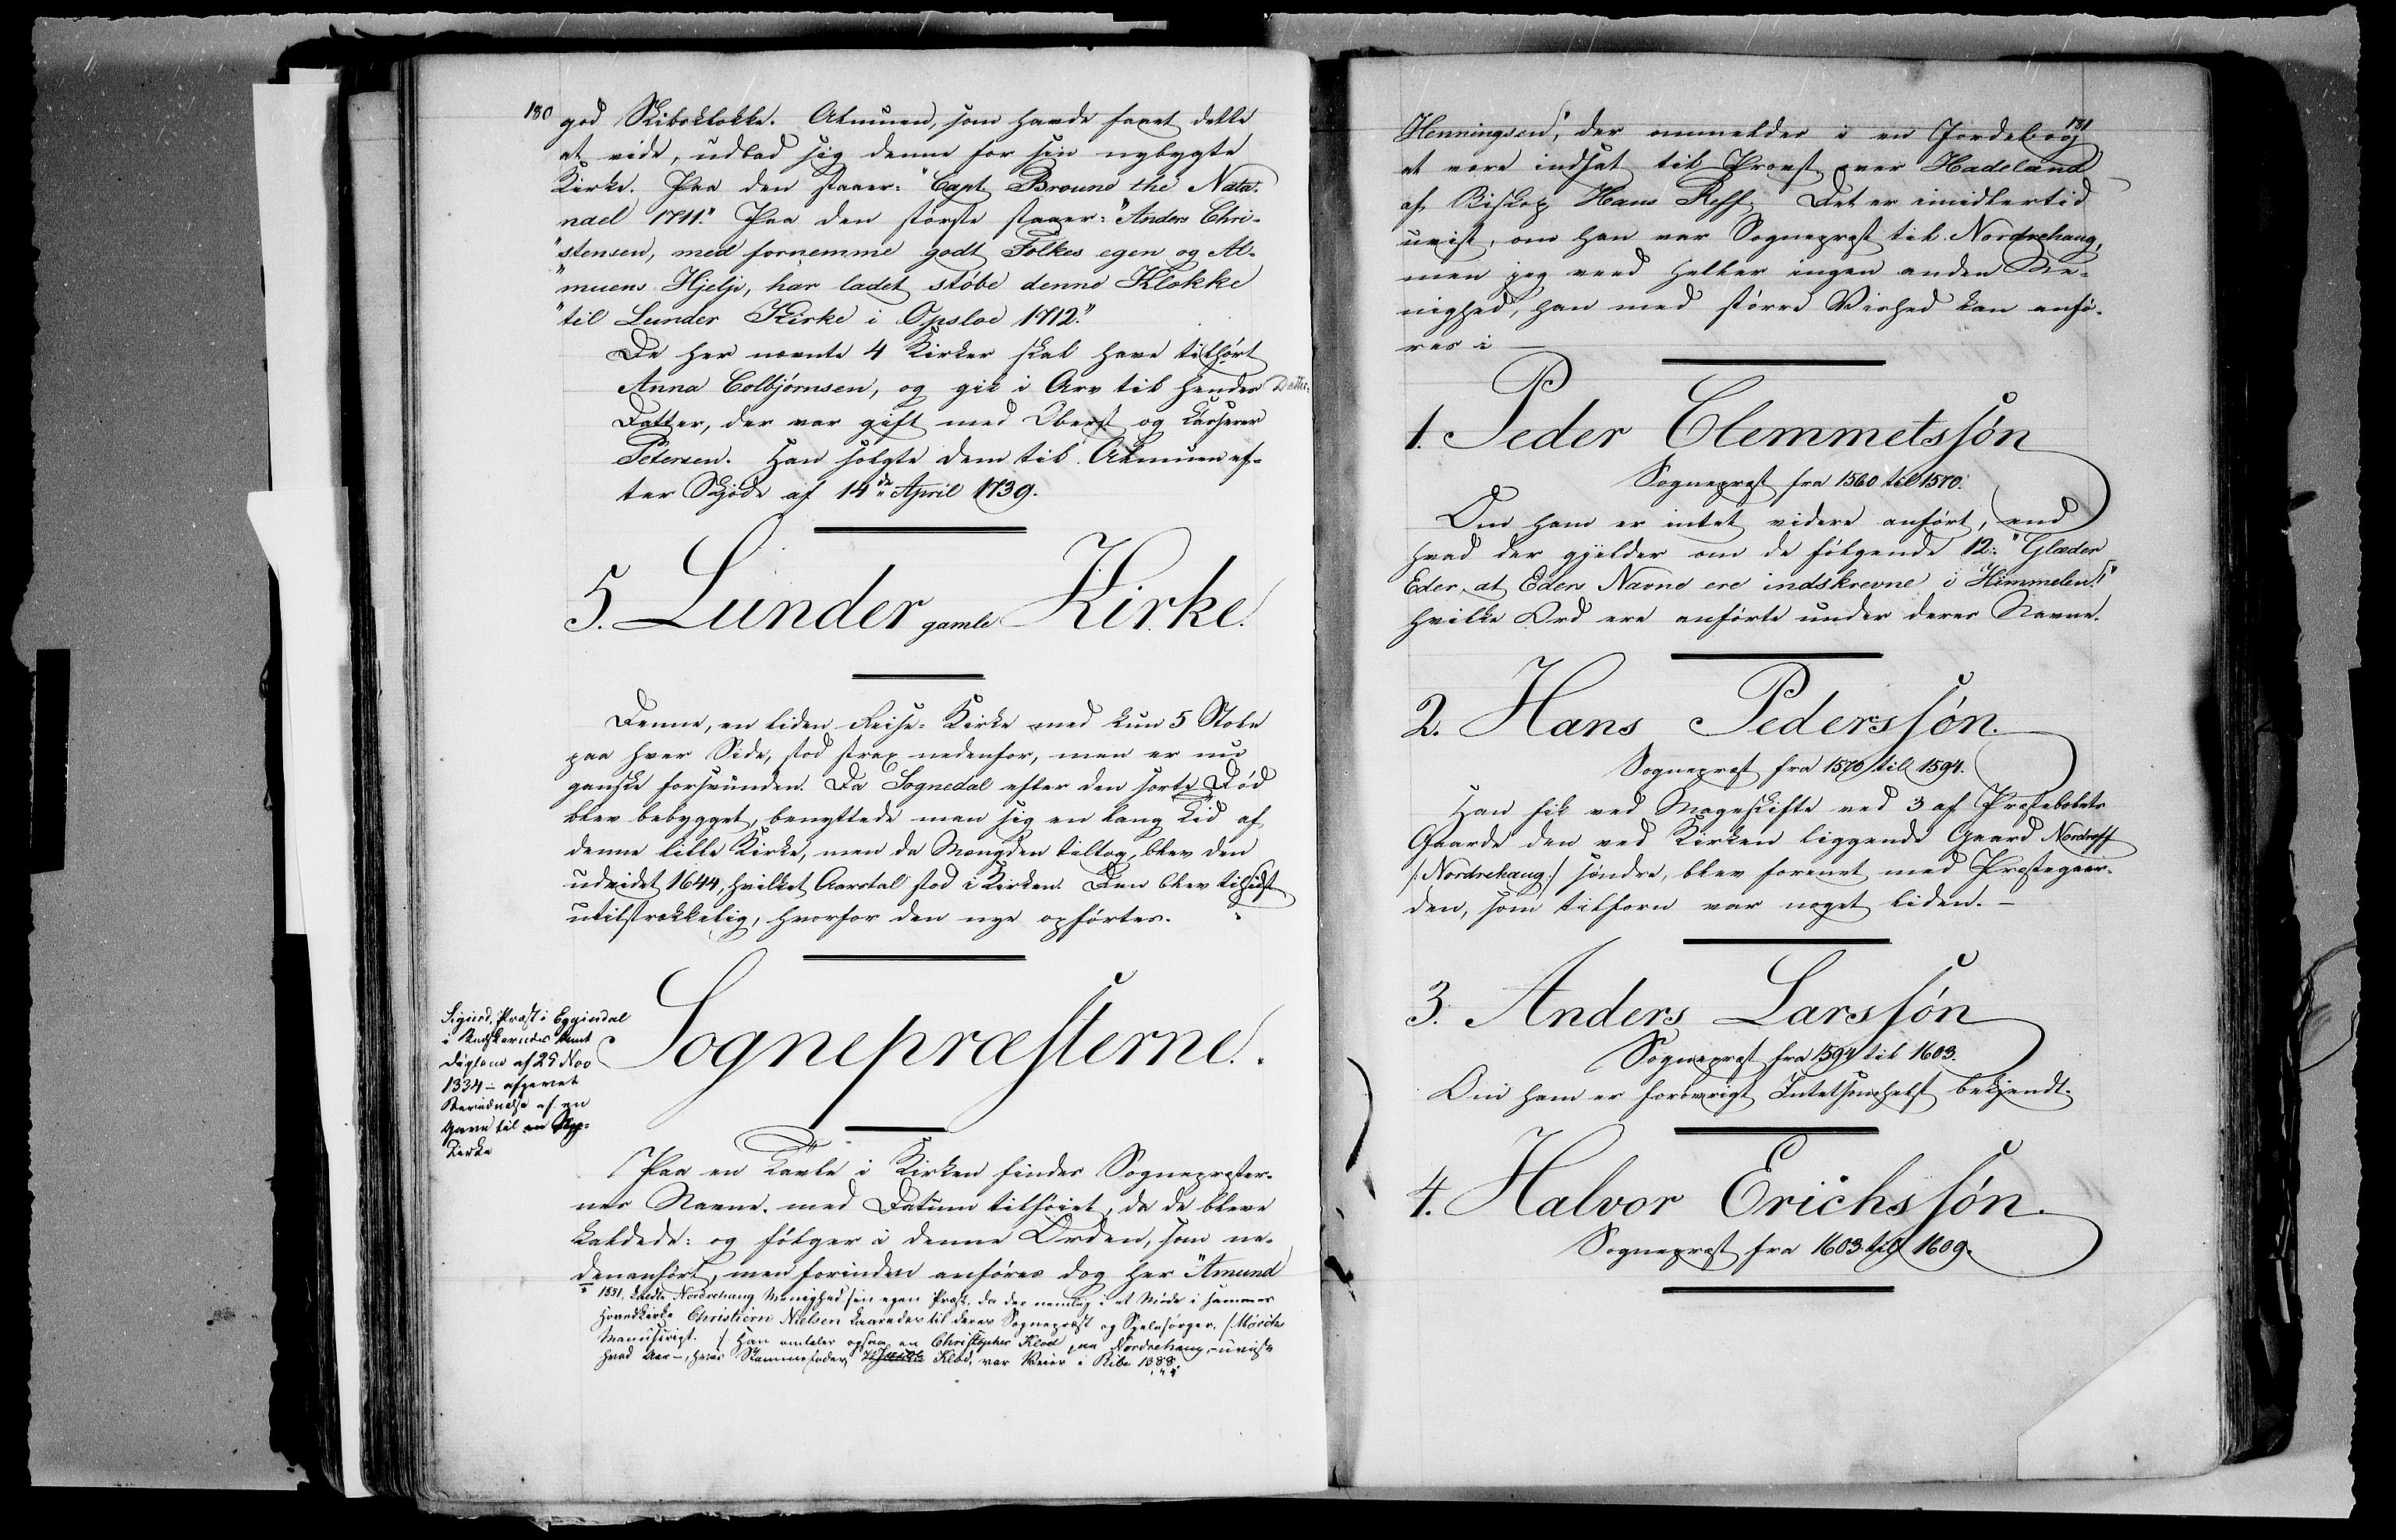 180
god Skibsklokke. Almuen, som havde faaet dette
at vide, udbad sig denne for sin nybygte
Kirke. Paa den staaer: "Capt. Broune the Nata-
nael 1711." Paa den største staaer: "Anders Chri-
"stensen, med fornemme godt Folkes egen og Al-
"muens Hjelp, har ladet støbe denne Klokke
"til Lunder Kirke i Opsloe 1712."
De her nævnte 4 Kirker skal have tilhørt
Anna Colbjørnsen, og gik i Arv til hendes Datter-
Datter, der var gift med Oberst og Kasserer
Petersen. Han solgte dem til Almuen ef-
ter Skjøde af 14de April 1739.
5. Lunder gamle Kirke.
Denne, en liden Reise-Kirke med kun 5 Stole
paa hver Side, stod strax nedenfor, men er nu
ganske forsvunden. Da Sognedal efter den sorte Død
blev bebygget, benyttede man sig en lang Tid af
denne lille Kirke, men da Mængden tiltog, blev den
udvidet 1644, hvilket Aarstal stod i Kirken. Den blev tilsidst
utilstrækkelig, hvorfor den nye opførtes.
Sognepræsterne.
Sigurd, Præst i Eggindal
i Buskeruds Amt
Diplom af 25 Nov
1334 - afgivet
Bevidnelse af en
Gave til en
Kirke
Paa en Tavle i Kirken findes Sognepræster-
nes Navne, med Datum tilføiet, da de bleve
kaldede: og følger i denne Orden, som ne-
denanført, men forinden anføres dog her "Amund
1551, kaldte Nordrehaug Menighed sin egen Præst, da der nemlig i et Møde i Hammer
Hovedkirke Christiern Nielsen kaaredes til deres Sognepræst og Sjelesørger. /Mosichs
Manuscript. / Han omtaler ogsaa en Christopher Klod paa Nordrehaug - uvist
hvad Aar -, hvis Stammefader, Klod, var i Ribe 1388.
181
Henningsen", der ommeldes i en Jordebog
at være indsat til Provst over Hadeland
af Biskop Hans Reff. Det er imidlertid
uvist, om han var Sognepræst til Nordrehaug,
men jeg veed heller ingen anden Me-
nighed, han med større Vished kan anfø-
res i —
1. Peder Clemmetssøn
Sognepræst fra 1560 til 1570.
Om ham er intet videre anført, end
hvad der gjelder om de følgende 12: "Glæder
Eder, at Eders Navne ere indskrevne i Himmelen!"
hvilke Ord ere anførte under deres Navne.
2. Hans Pederssøn.
Sognepræst fra 1570 til 1594.
Han fik ved Mageskifte ved 3 af Præstebolets
Gaarde den ved Kirken liggende Gaard Nordreff
/: Nordrehaug :/ søndre, blev forenet med Præstegaar-
den, som tilforn var noget liden. —
3. Anders Larssøn
Sognepræst fra 1594 til 1603.
Om ham er forøvrigt Intetsomhelst bekjendt.
4. Halvor Erichssøn.
Sognepræst fra 1603 til 1609.